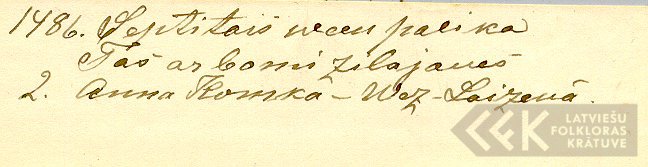 1486. Septitais ween palika
Tas ar bomi zilajaues
2. Anna Komka – Wez-Laizenā.
LATVIEŠU
FOLKLORAS
KRĀTUVE